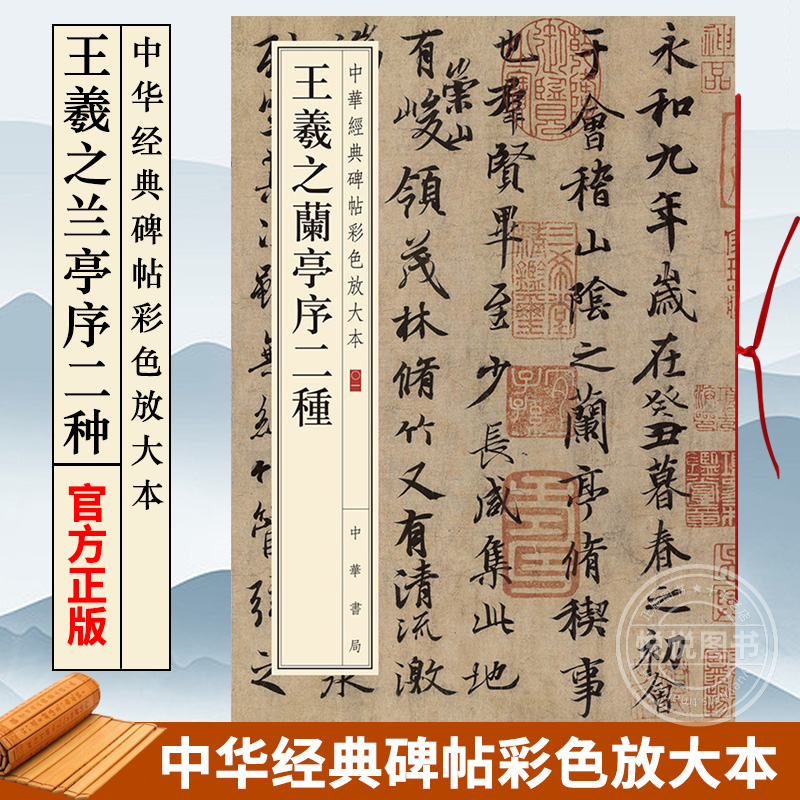 中华经典碑帖彩色放大本
王羲之兰亭序二种
官方正版
中華經典碑帖彩色放大本
〇一
王羲之蘭亭序二種
中華書局
永和九年歲在癸丑暮春之初會
于會稽山陰之蘭亭脩稧事
也羣賢畢至少長咸集此地
有崇山峻領茂林脩竹又有清流激
無
管弦之
神品
三希堂精鑑璽
宜子孫
图书
中华经典碑帖彩色放大本